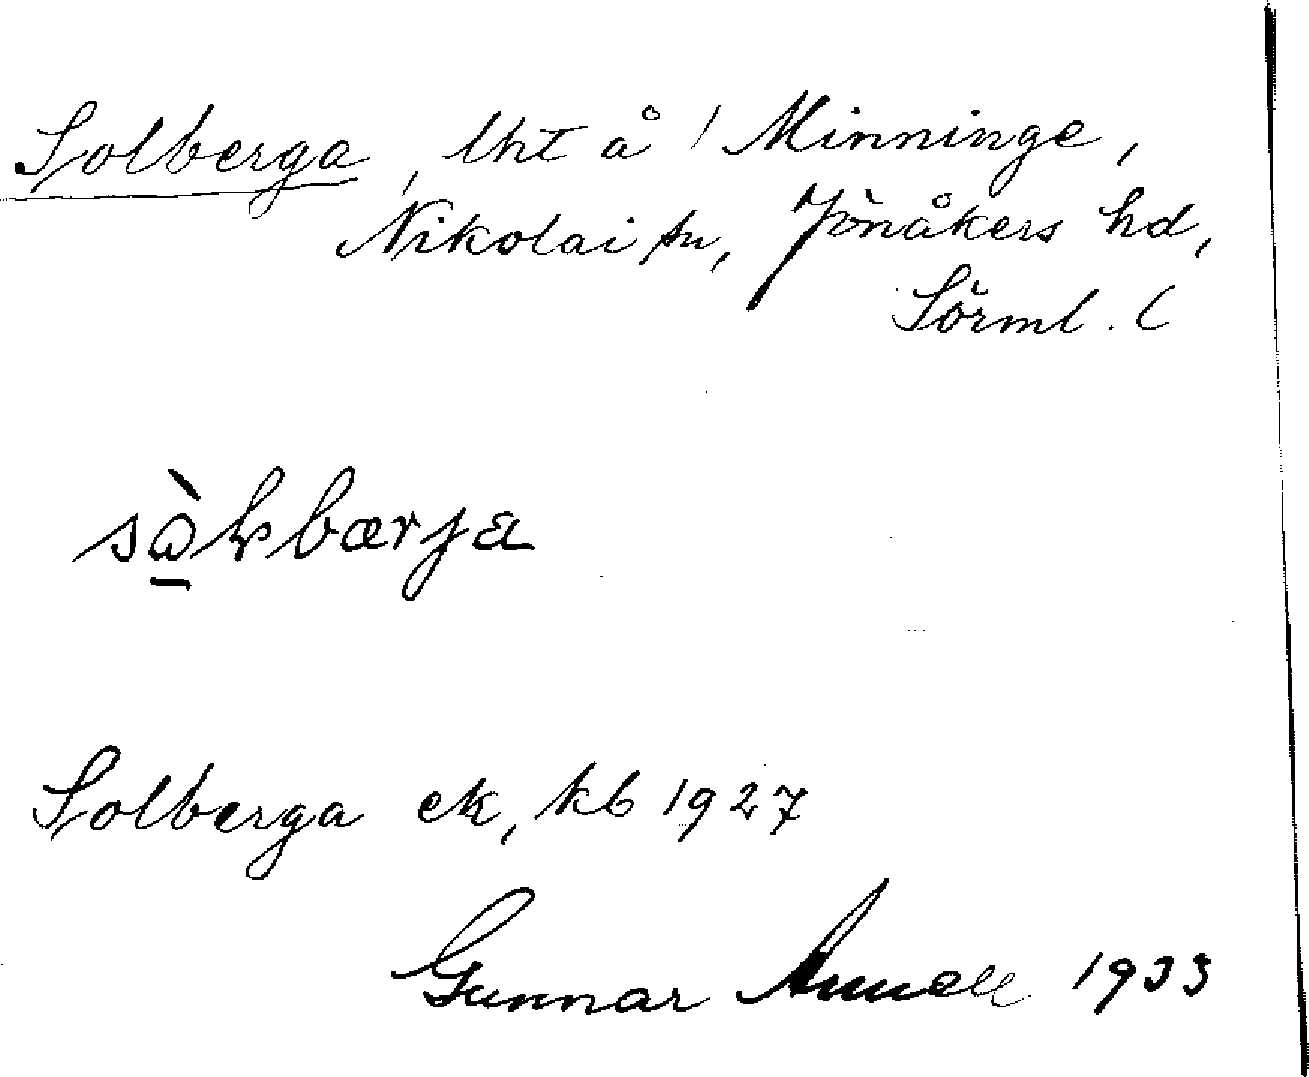 Solberga, lht å 1 Minninge,
Nikolai sn, Jönåkers hd,
Sörml. (
Solberga ek, kb 1927
Gunnar Annell 1933